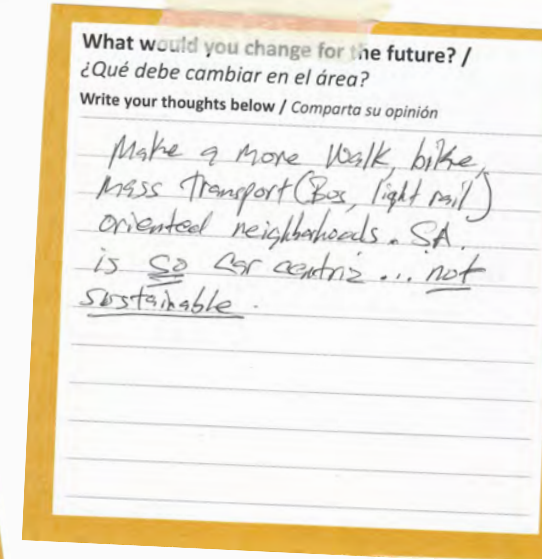 What would you change for the future? /
¿Qué debe cambiar en el área?
Write your thoughts below / Comparta su opinión
Make a more walk, bike,
mass transport (Bus, light rail)
oriented neighborhoods. SA.
is so car centriz... not
sustainable.